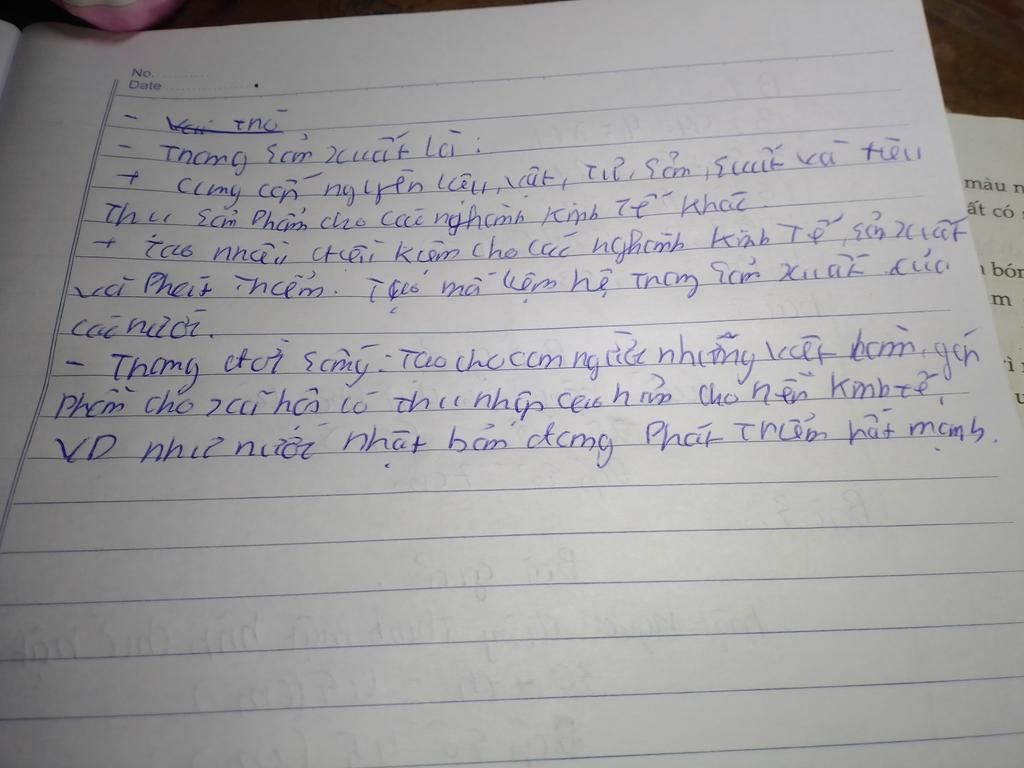 No.
Date
- Vai trò
- Trong sản xuất là:
+ cung cấp nguyên liệu, vật, tư, sản, suất và tiêu
thu sản phẩm cho các nghành kinh tế khác
+ tạo nhiều điều kiện cho các nghành kinh tế, sản xuất
và phát triển. Tạo mối liên hệ trong sản xuất của
các nước.
- Trong đời sống: Tạo cho con người những việt làm, góp
phần cho xã hội có thu nhập cao hơn cho nền kinh tế,
VD như nước nhật bản đang phát triển rất mạnh.
màu n
ất có
bón
m